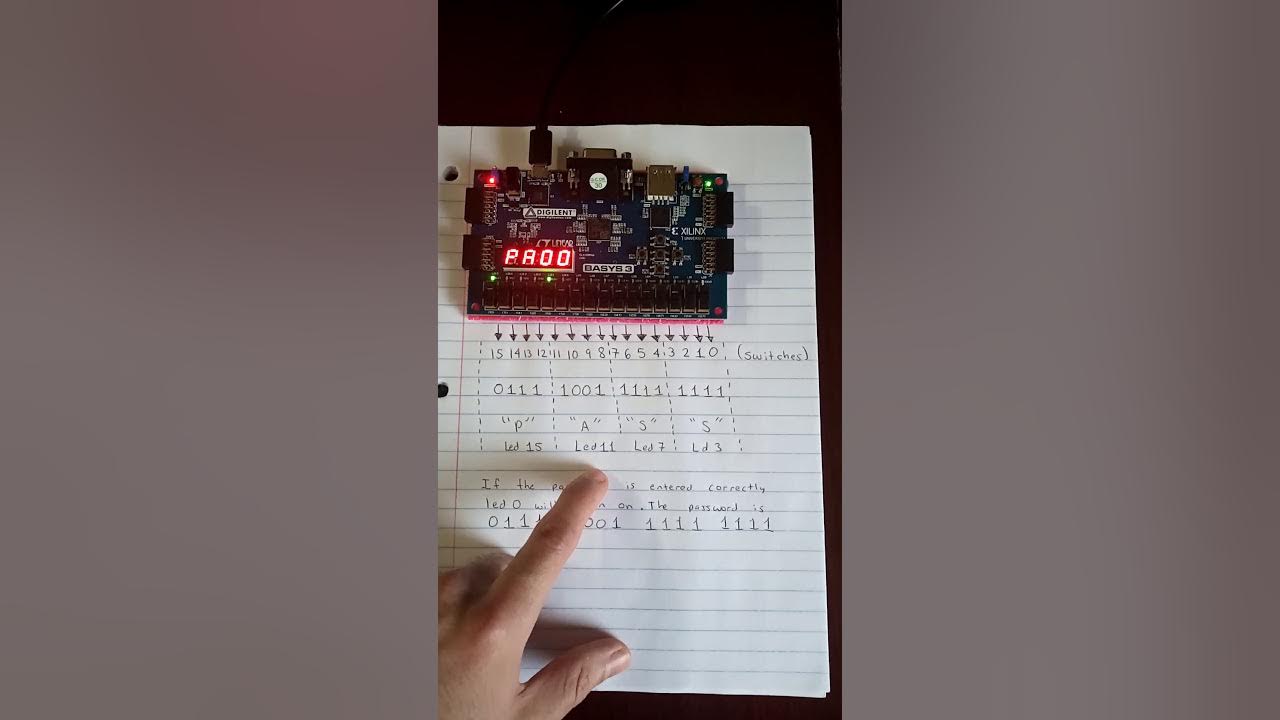 DIGILENT
LINEAR
XILINX
PA00
BASYS 3
15 14 13 12 11 10 9 8 7 6 5 4 3 2 1 0 (Switches)
0111 1001 1111 1111
"P" "A" "S" "S"
Led 15 Led 11 Led 7 Ld 3
If the is entered correctly
led 0 on. The password is
011 001 1111 1111